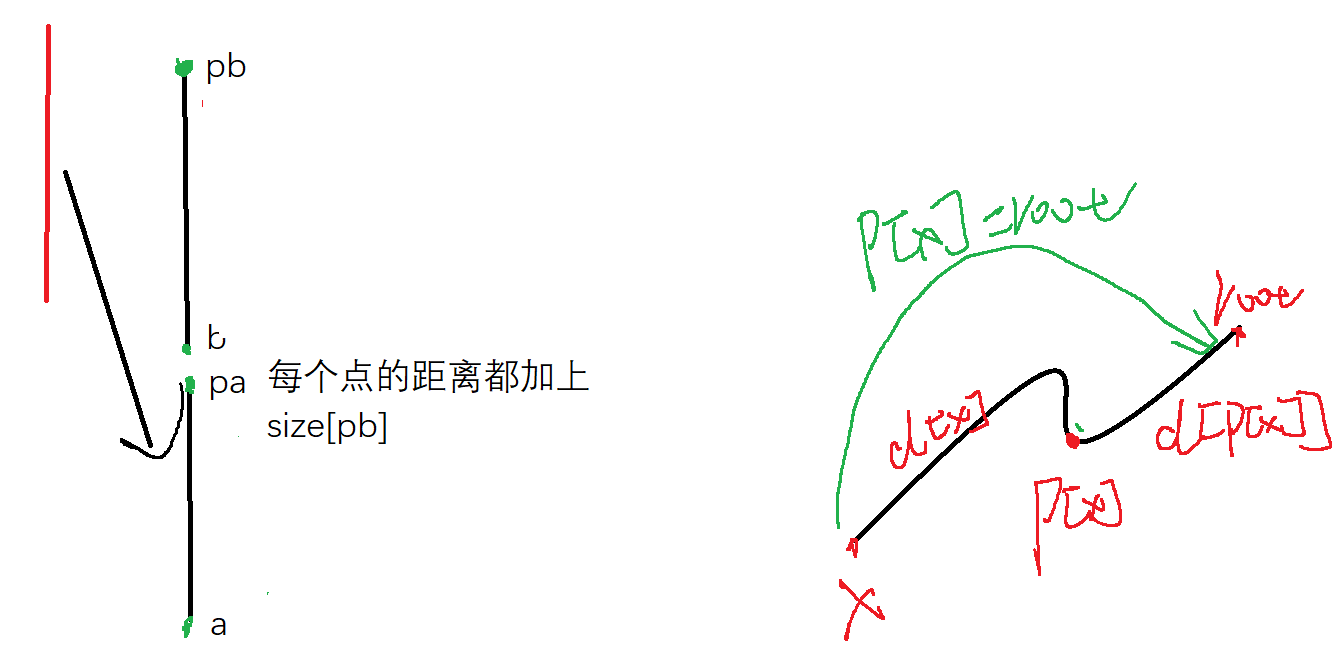 pb
b
pa
每个点的距离都加上
size[pb]
a
p[x]=root
root
d[x]
d[p[x]]
p[x]
x